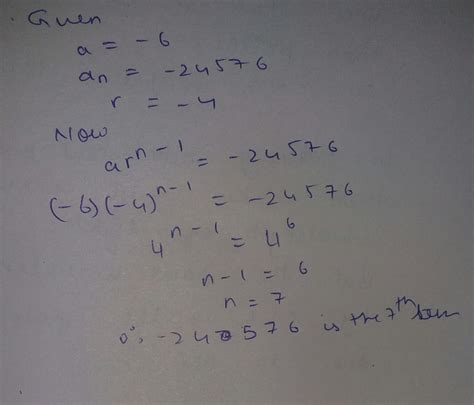 Given
a = -6
an = -24576
r = -4
Now
ar^n-1 = -24576
(-6)(-4)^n-1 = -24576
4^n-1 = 4^6
n-1 = 6
n = 7
∴ -24576 is the 7th term